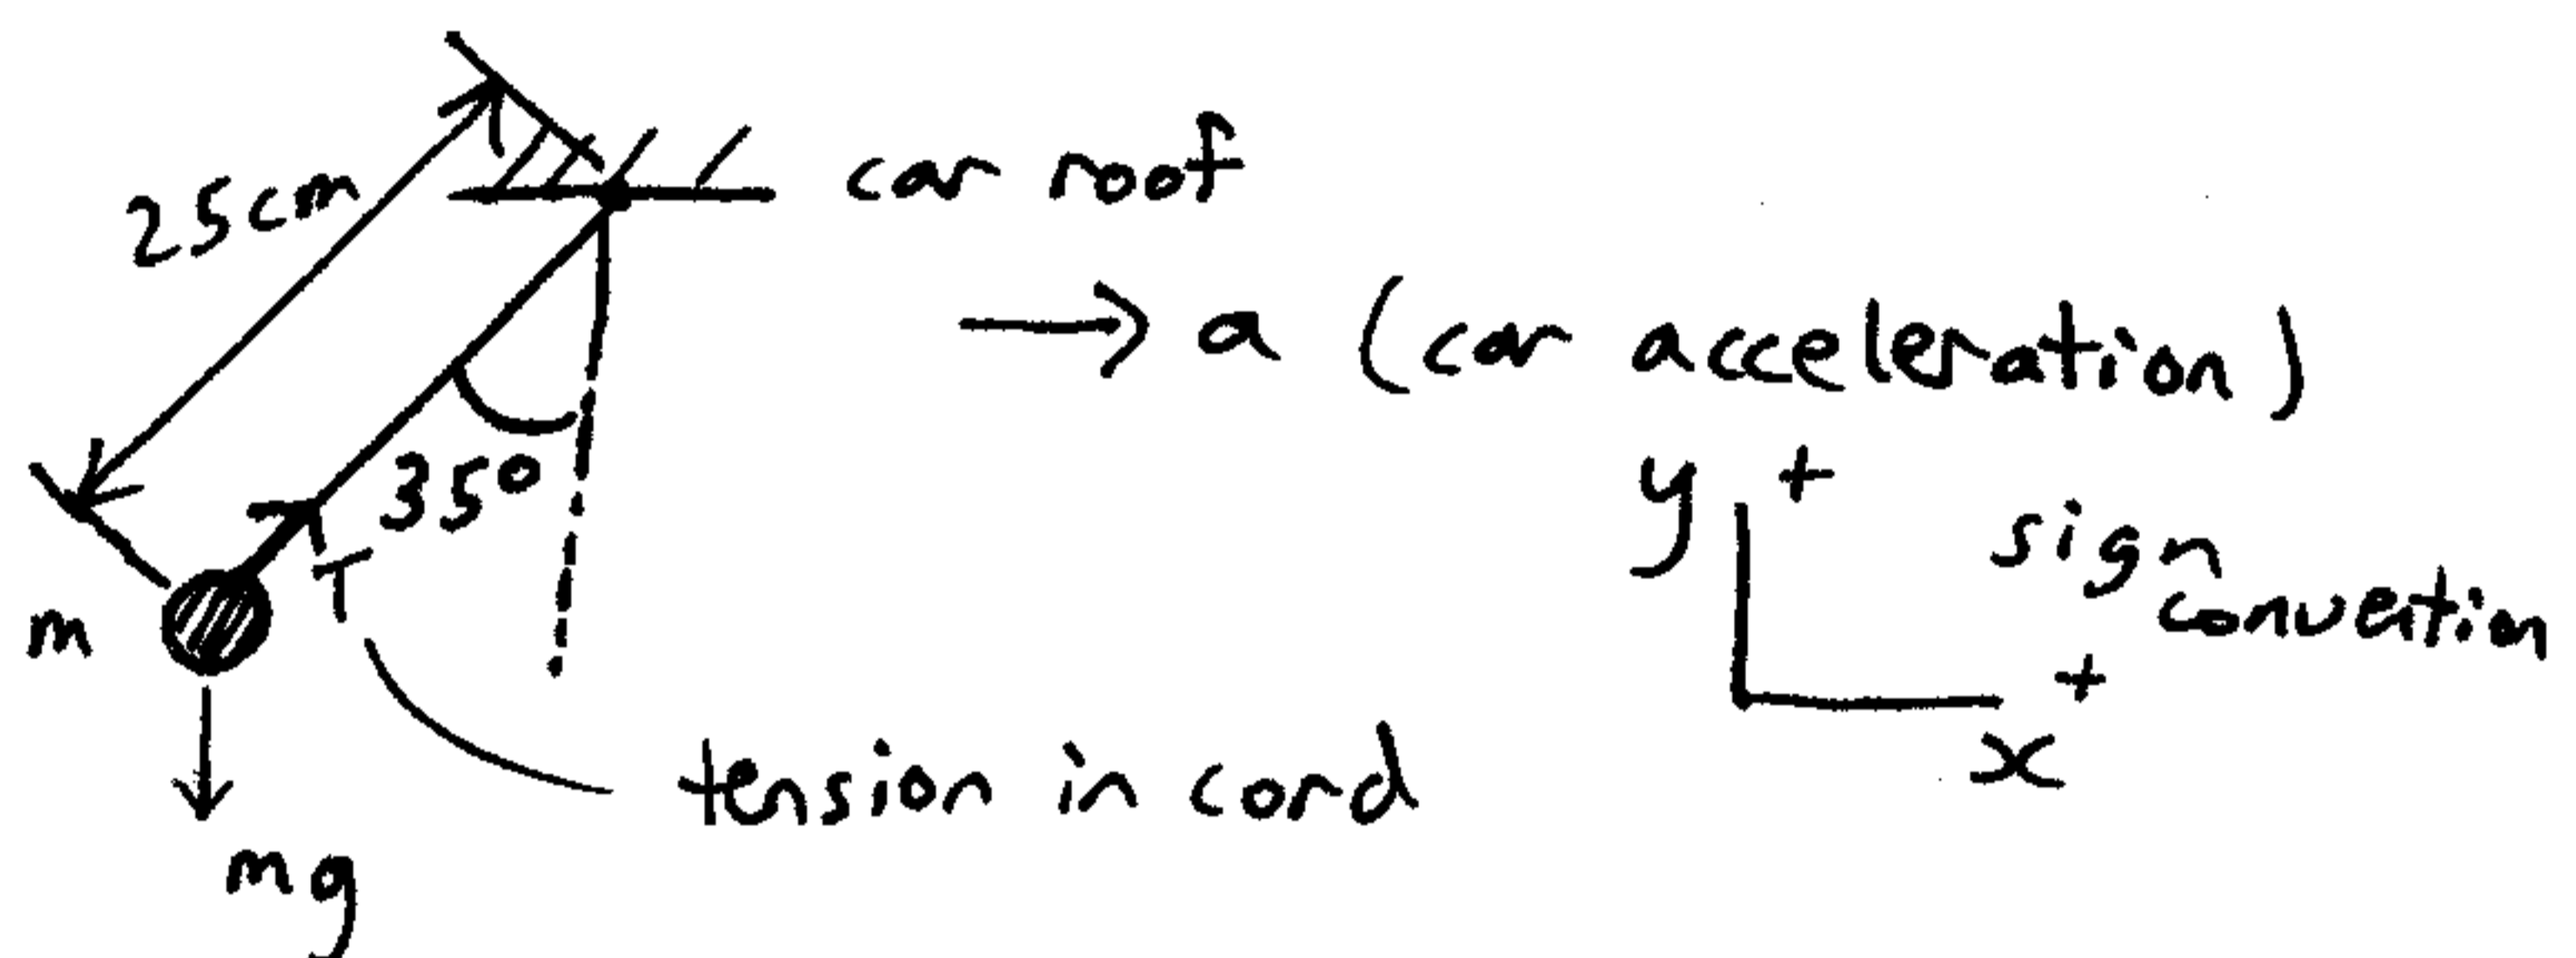 25cm
car roof
→ a (car acceleration)
35°
y +
sign
convention
T
m
+
x
tension in cord
mg